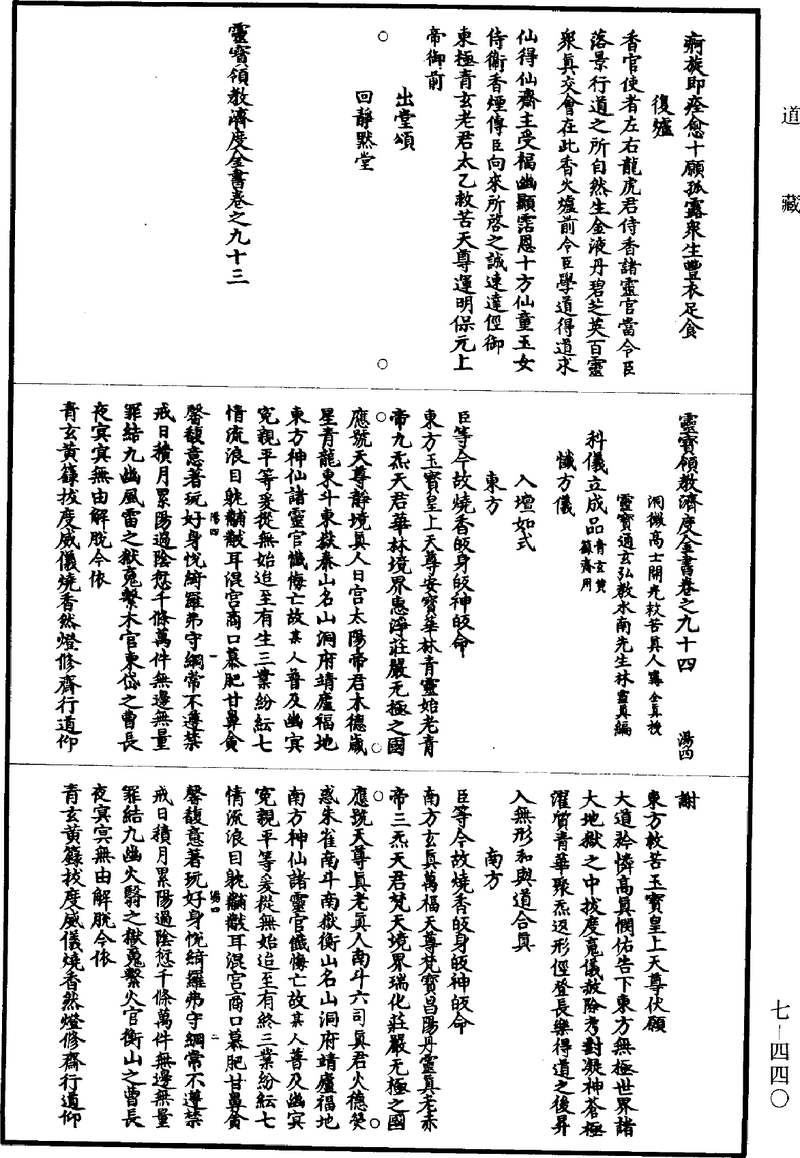 道藏
痾旋即痊愈十願孤露眾生豐衣足食
復爐
香官使者左右龍虎君侍香諸靈官當令臣
落景行道之所自然生金液丹碧芝英百靈
眾真交會在此香火爐前令臣學道得道求
仙得仙齋主受福幽顯霑恩十方仙童玉女
侍衛香煙傳臣向來所啓之誠速達徑御
東極青玄老君太乙救苦天尊運明保元上
帝御前
出堂頌
○ 回靜默堂 ○
靈寶領教濟度金書卷之九十三
靈寶領教濟度金書卷之九十四 湯四
洞微高士開光救苦真人甯全真授
靈寶通玄弘教水南先生林靈真編
科儀立成品青玄黃籙齋用
懺方儀
入壇如式
東方
臣等今故燒香皈身皈神皈命
東方玉寶皇上天尊安寶華林青靈始老青
帝九炁天君華林境界惠淨莊嚴无極之國
○應號天尊靜境真人日宮太陽帝君木德歲○
星青龍東斗東嶽泰山名山洞府靖廬福地
東方神仙諸靈官懺悔亡故某人普及幽冥
冤親平等爰從無始迨至有生三業紛紜七
情流浪目躭黼黻耳混宮商口慕肥甘鼻貪
湯四 一
馨馥意著玩好身悅綺羅弗守綱常不遵禁
戒日積月累陽過陰愆千條萬件無邊無量
罪結九幽風雷之獄䰟繫木官東岱之曹長
夜冥冥無由解脫今依
青玄黃籙拔度威儀燒香然燈修齋行道仰
謝
東方救苦玉寶皇上天尊伏願
大道矜憐高真憫佑告下東方無極世界諸
大地獄之中拔度䰟儀赦除考對凝神蒼極
濯質青華聚炁返形徑登長樂得道之後昇
入無形和與道合真
南方
臣等今故燒香皈身皈神皈命
南方玄真萬福天尊梵寶昌陽丹靈真老赤
帝三炁天君梵天境界瑞化莊嚴无極之國
○應號天尊真老真人南斗六司真君火德熒○
惑朱雀南斗南嶽衡山名山洞府靖廬福地
南方神仙諸靈官懺悔亡故某人普及幽冥
冤親平等爰從無始迨至有終三業紛紜七
情流浪目躭黼黻耳混宮商口慕肥甘鼻貪
湯四 二
馨馥意著玩好身悅綺羅弗守綱常不遵禁
戒日積月累陽過陰愆千條萬件無邊無量
罪結九幽火翳之獄䰟繫火官衡山之曹長
夜冥冥無由解脫今依
青玄黃籙拔度威儀燒香然燈修齋行道仰
七—四四〇